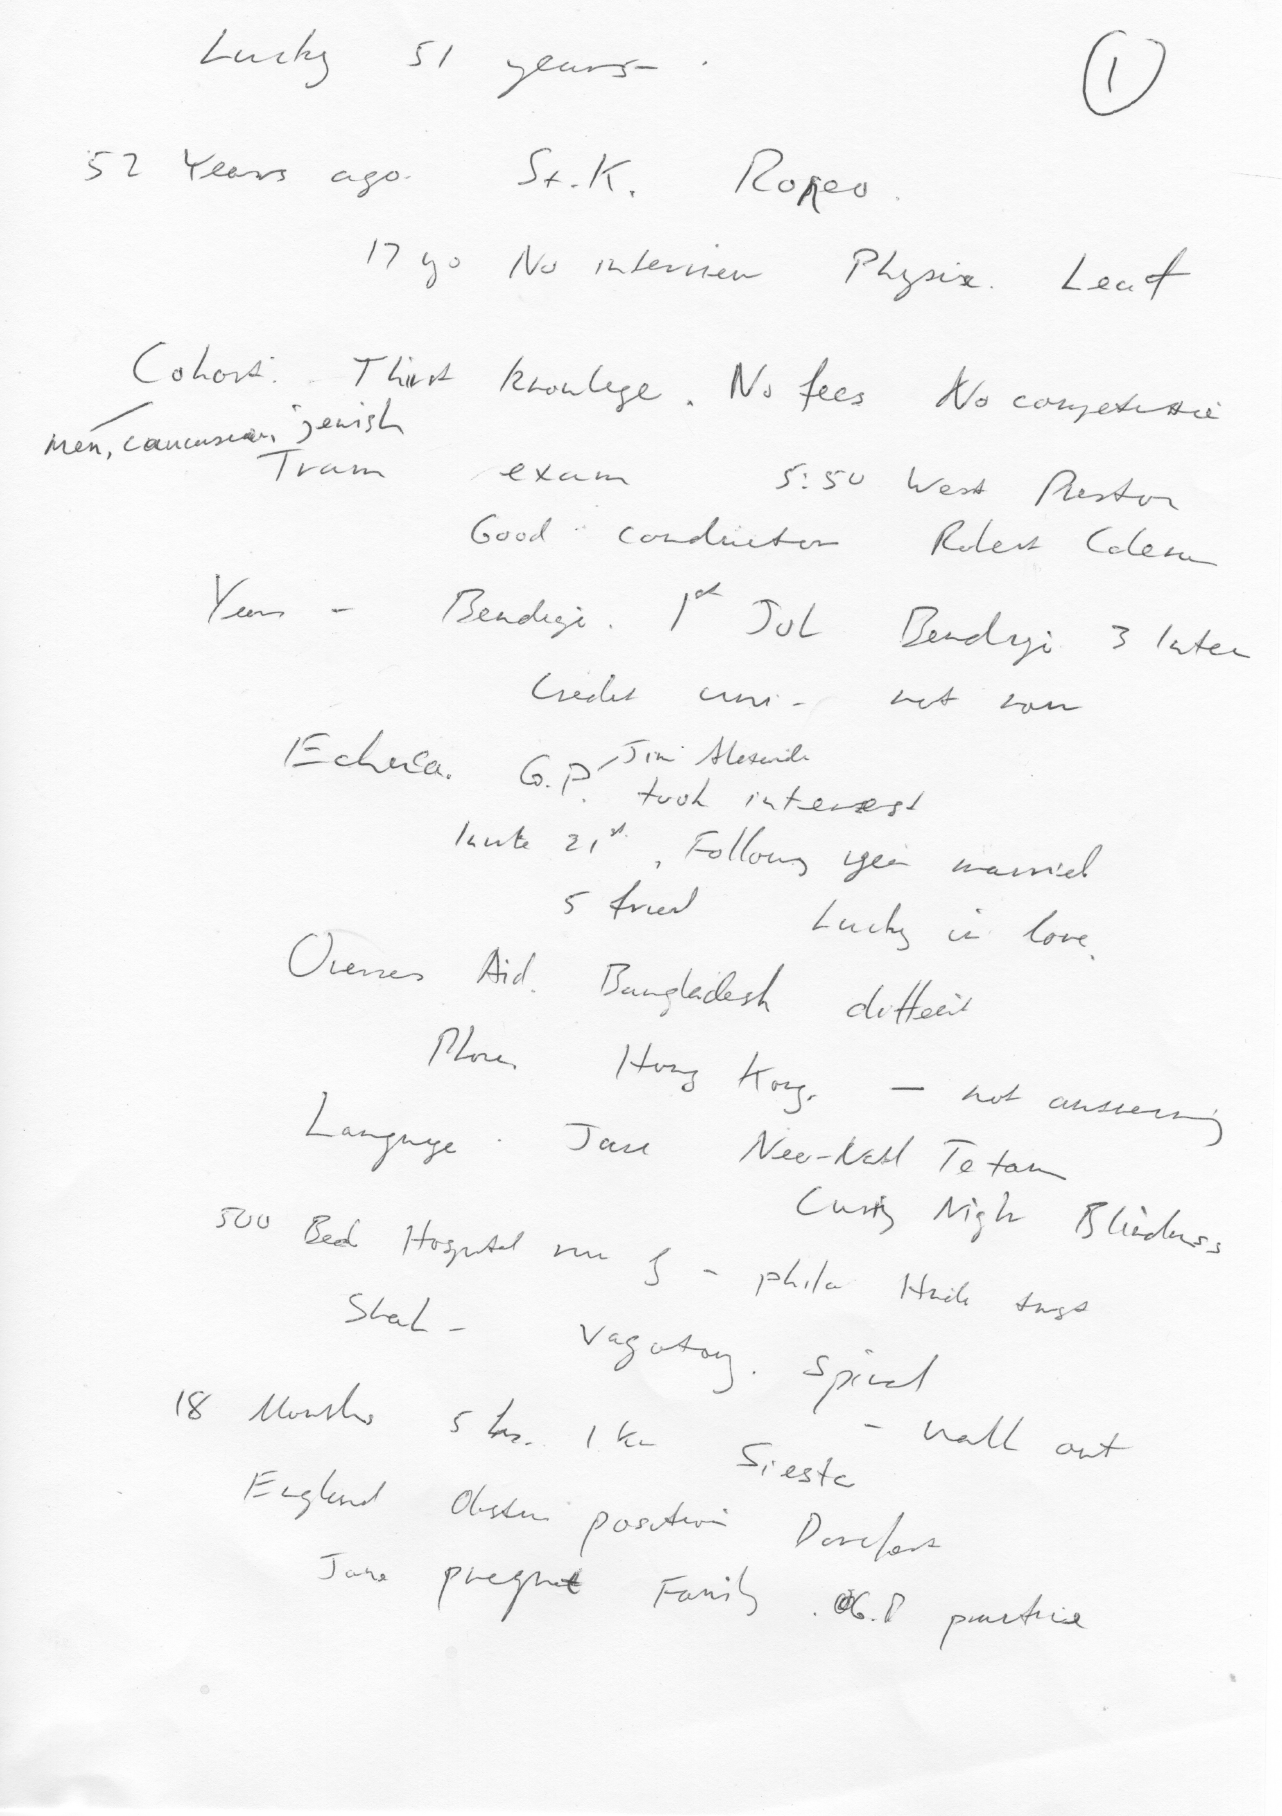 Lucky 51 years.
1
52 Years ago. St. K. Romeo.
17 yo No interview Physix. Leaf
Cohort. Thirst knowlege. No fees No competitie
men, caucasian, jewish
Tram exam 5:50 West Preston
Good conductor Robert
Year - Bendigo. 1st Job Bendigo 3 later
Credit uni - not now
Echuca. G.P. Jim
took interest
Invite 21st. Following year married
5 Lucky in love.
Overseas Aid. Bangladesh difficult
Phone Hong Kong. - not answering
Language. Jane Neo-Natal Tetan
Night Blindness
500 Bed Hospital run by - phila trust
Vagotomy. Spinal
- walk out
18 Months 5 hr. 1 km Siesta
England Obstetri position
Jane pregnet Family. G.P practice